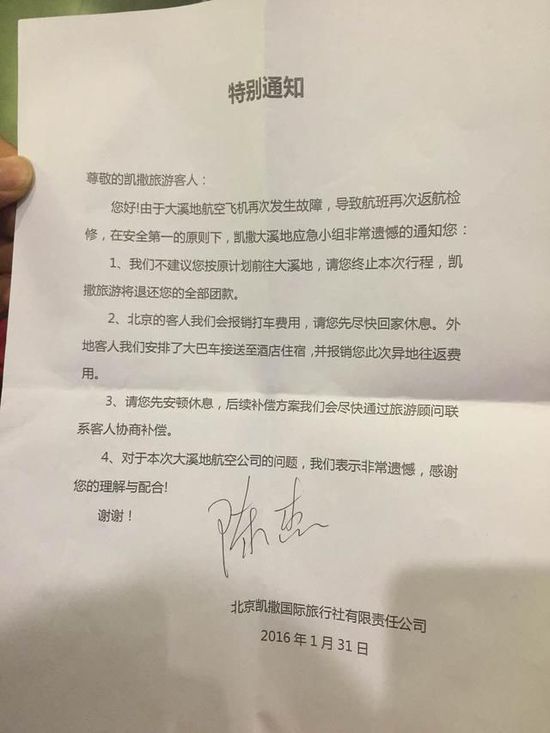 特别通知
尊敬的凯撒旅游客人：
您好!由于大溪地航空飞机再次发生故障，导致航班再次返航检
修，在安全第一的原则下，凯撒大溪地应急小组非常遗憾的通知您：
1、我们不建议您按原计划前往大溪地，请您终止本次行程，凯
撒旅游将退还您的全部团款。
2、北京的客人我们会报销打车费用，请您先尽快回家休息。外
地客人我们安排了大巴车接送至酒店住宿,并报销您此次异地往返费
用。
3、请您先安顿休息，后续补偿方案我们会尽快通过旅游顾问联
系客人协商补偿。
4、对于本次大溪地航空公司的问题，我们表示非常遗憾，感谢
您的理解与配合!
谢谢！
陈杰
北京凯撒国际旅行社有限责任公司
2016年1月31日